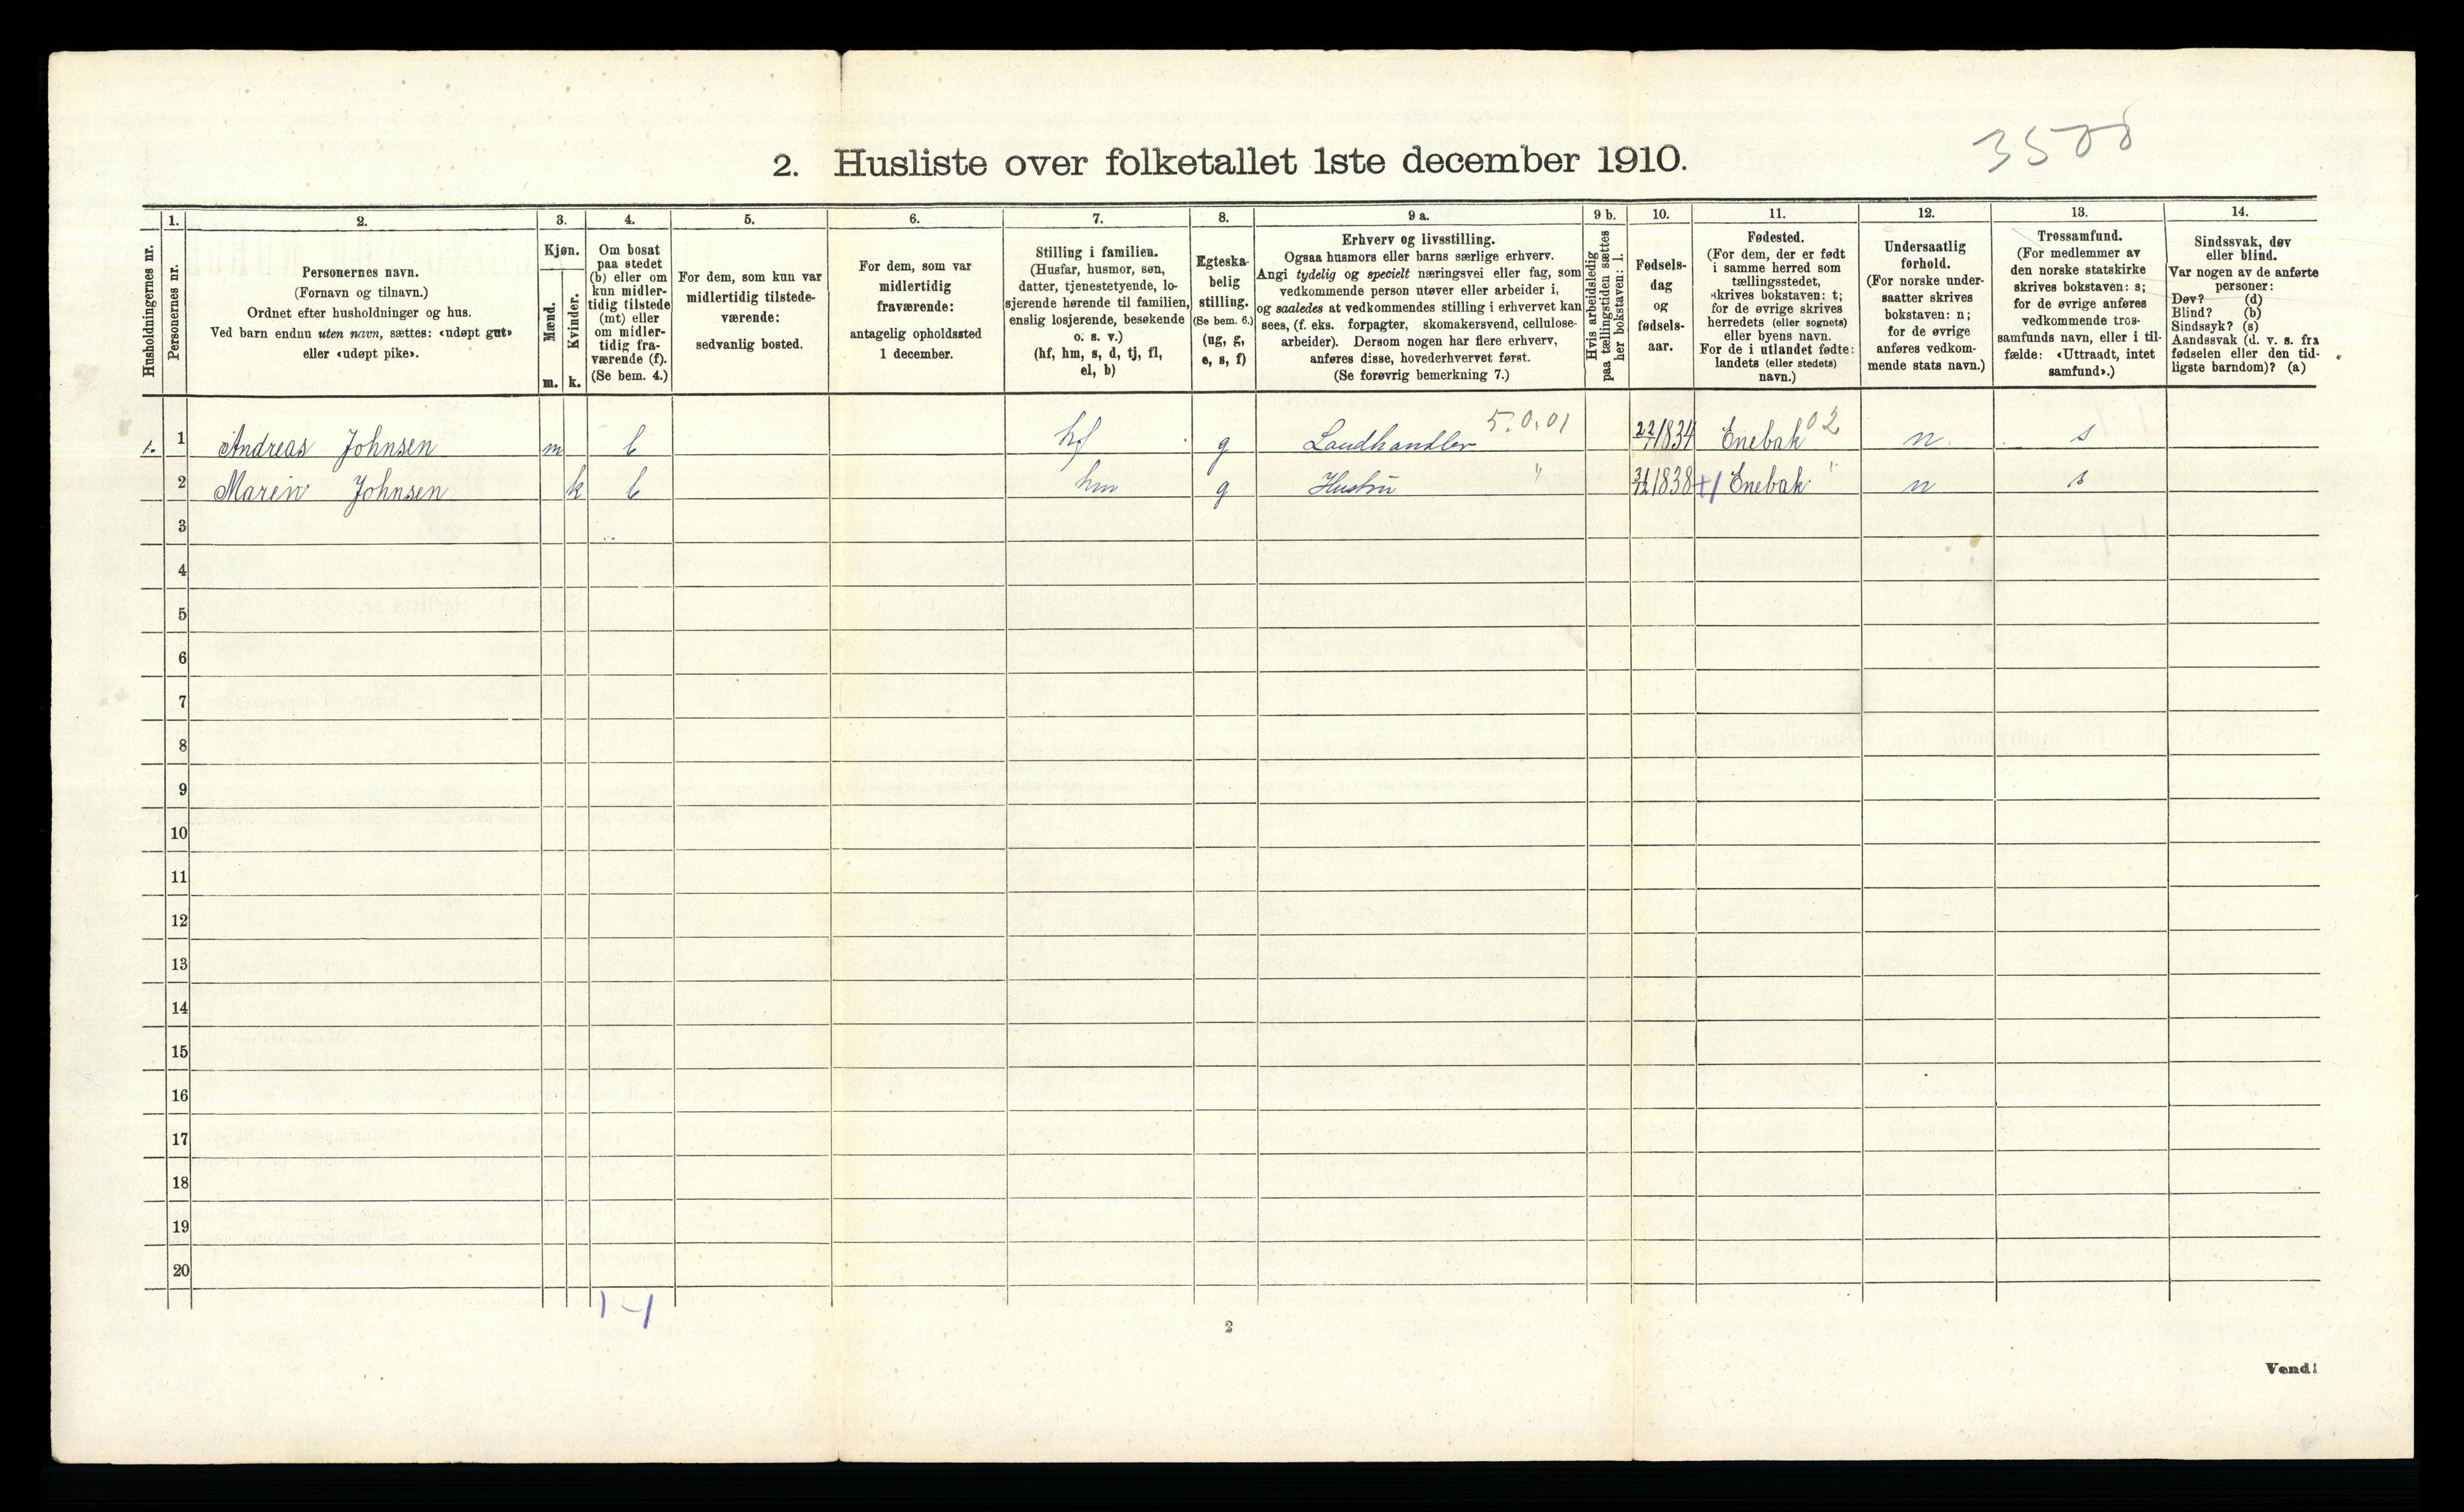 3500
2. Husliste over folketallet 1ste december 1910.
1. 2. 3. 4. 5. 6. 7. 8. 9 a. 9 b. 10. 11. 12. 13. 14.
Husholdningernes nr.
Personernes nr.
Personernes navn.
(Fornavn og tilnavn.)
Ordnet efter husholdninger og hus.
Ved barn endnu uten navn, sættes: «udøpt gut»
eller «udøpt pike».
Kjøn.
Mænd.
Kvinder.
m. k.
Om bosat
paa stedet
(b) eller om
kun midler-
tidig tilstede
(mt) eller
om midler-
tidig fra-
værende (f).
(Se bem. 4.)
For dem, som kun var
midlertidig tilstede-
værende:
sedvanlig bosted.
For dem, som var
midlertidig
fraværende:
antagelig opholdssted
1 december.
Stilling i familien.
(Husfar, husmor, søn,
datter, tjenestetyende, lo-
sjerende hørende til familien,
enslig losjerende, besøkende
o. s. v.)
(hf, hm, s, d, tj, fl,
el, b)
Egteska-
belig
stilling.
(Se bem. 6.)
(ug, g,
e, s, f)
Erhverv og livsstilling.
Ogsaa husmors eller barns særlige erhverv.
Angi tydelig og specielt næringsvei eller fag, som
vedkommende person utøver eller arbeider i,
og saaledes at vedkommendes stilling i erhvervet kan
sees, (f. eks. forpagter, skomakersvend, cellulose-
arbeider). Dersom nogen har flere erhverv,
anføres disse, hovederhvervet først.
(Se forøvrig bemerkning 7.)
Hvis arbeidsledig
paa tællingstiden sættes
her bokstaven: l.
Fødsels-
dag
og
fødsels-
aar.
Fødested.
(For dem, der er født
i samme herred som
tællingsstedet,
skrives bokstaven: t;
for de øvrige skrives
herredets (eller sognets)
eller byens navn.
For de i utlandet fødte:
landets (eller stedets)
navn.)
Undersaatlig
forhold.
(For norske under-
saatter skrives
bokstaven: n;
for de øvrige
anføres vedkom-
mende stats navn.)
Trossamfund.
(For medlemmer av
den norske statskirke
skrives bokstaven: s;
for de øvrige anføres
vedkommende tros-
samfunds navn, eller i til-
fælde: «Uttraadt, intet
samfund».)
Sindssvak, døv
eller blind.
Var nogen av de anførte
personer:
Døv? (d)
Blind? (b)
Sindssyk? (s)
Aandssvak (d. v. s. fra
fødselen eller den tid-
ligste barndom)? (a)
1. 1 Andreas Johnsen m b hf g Landhandler 5.0.01 22/7 1834 Enebak 02 n s
2 Maren Johnsen k b hm g Hustru " 1838 +1 Enebak " n s
3
4
5
6
7
8
9
10
11
12
13
14
15
16
17
18
19
20
1-1
2
Vend!